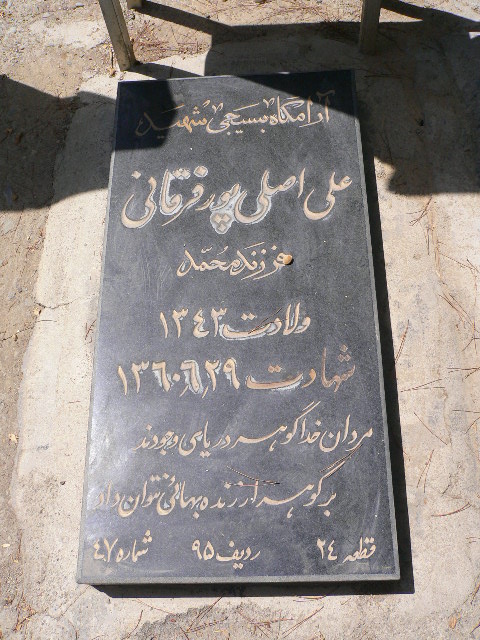 آرامگاه بسیجی شهید
علی اصلی پور فرقانی
فرزند محمّد
ولادت ۱۳۴۳
شهادت ۱۳۶۰٫۶٫۲۹
مردان خدا گوهر دریای وجودند
بر گوهر ارزنده بهائی نتوان داد
قطعه ۲۴ ردیف ۹۵ شماره ۴۷